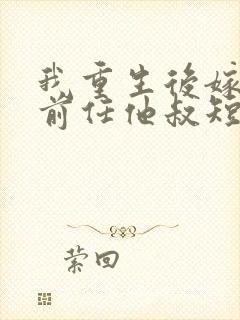 我重生後嫁
前任他叔短
萦回